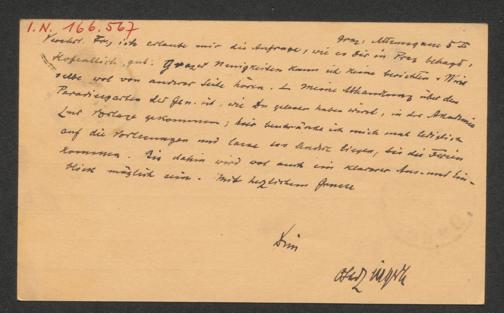 I. N. 166.567
Graz, Attemsgasse 5 II
Verehrt. Fr., ich erlaube mir die Anfrage, wie es Dir in Prag behagt,
Hoffentlich gut. Grazer Neuigkeiten kann ich keine berichten. Wirst
selbe wol von anderer Seite hören. Meine Abhandlung über den
Paradiesgarten der Gen. ist, wie Du gelesen haben wirst, in der Akademie
zur Vorlage gekommen; hier beschränke ich mich lediglich
auf die Vorlesungen und lasse das andere liegen, bis die Ferien
kommen. Bis dahin wird wol auch ein klarerer Aus- und Ein-
blick möglich sein. Mit herzlichem Grusse
Dein